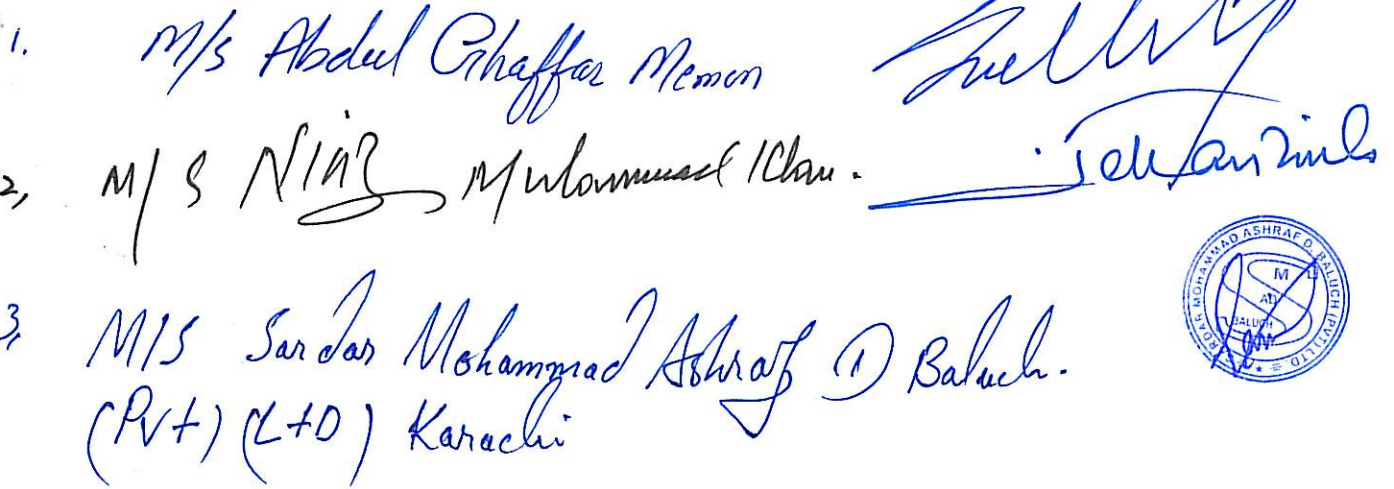 1. M/s Abdul Ghaffar Memon
2, M/S Niaz Muhammad Khan.
3, M/S Sardar Mohammad Ashraf D Baluch.
(Pvt) (LtD) Karachi
RDAR MOHAMMAD ASHRAF D. BALUCH (PVT) LTD
M
AD
BALUCH